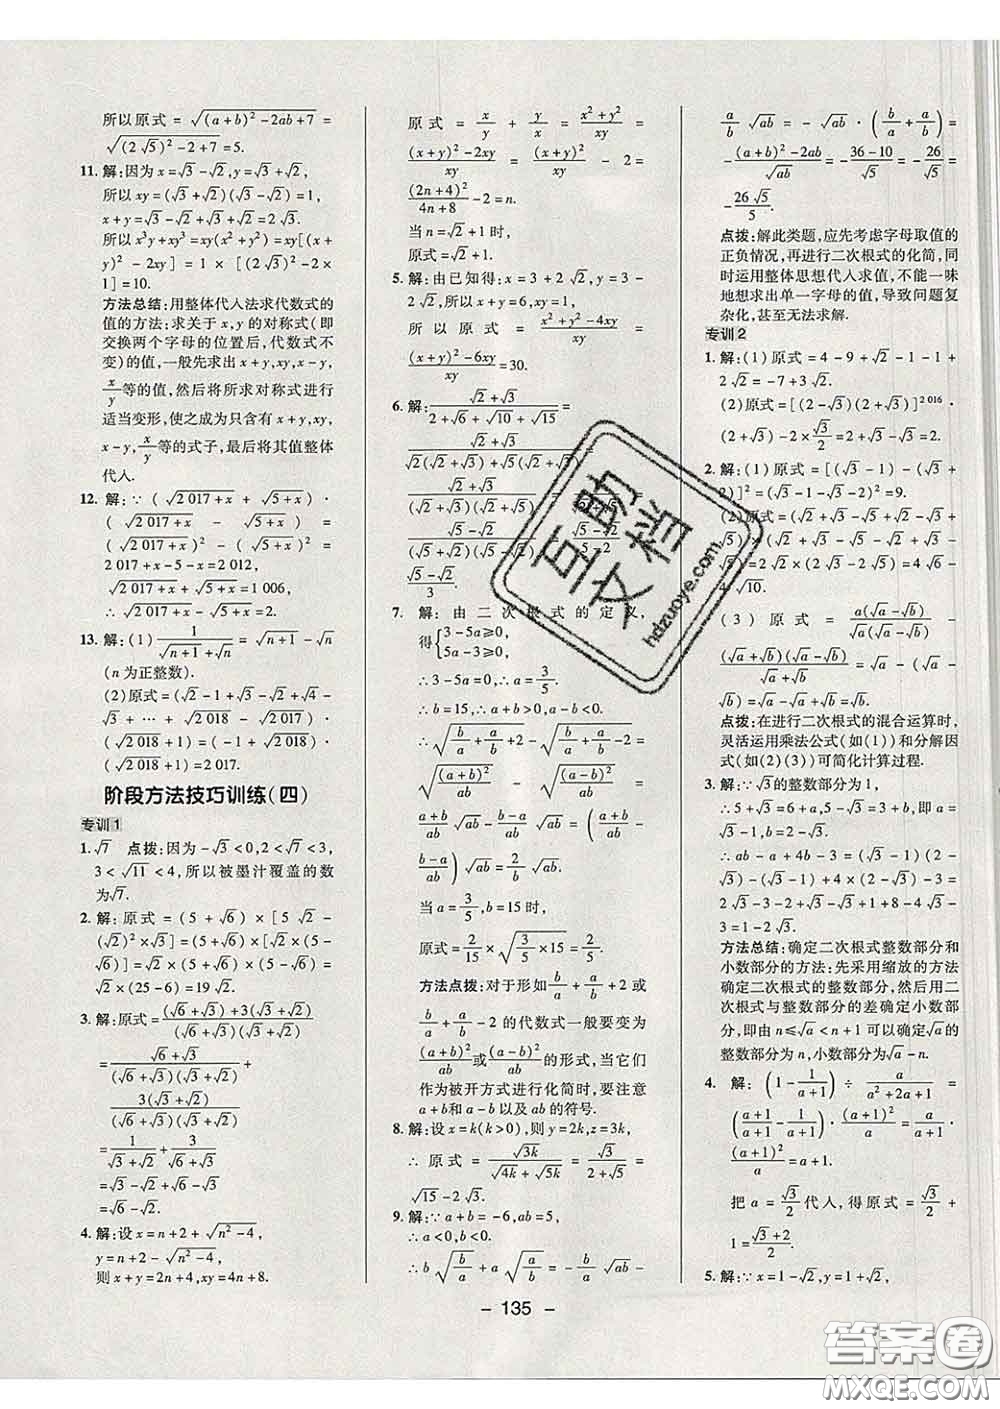 所以原式=√((a+b)²-2ab+7)=
√((2√5)²-2+7)=5.
11. 解:因为x=√3-√2,y=√3+√2,
所以xy=(√3+√2)(√3-√2)=1,
x+y=√3-√2+√3+√2=2√3.
所以x³y+xy³=xy(x²+y²)=xy[(x+
y)²-2xy]=1×[(2√3)²-2×
1]=10.
方法总结:用整体代入法求代数式的
值的方法:求关于x,y的对称式(即
交换两个字母的位置后,代数式不
变)的值,一般先求出x+y,xy,x-y,
x/y等的值,然后将所求对称式进行
适当变形,使之成为只含有x+y,xy,
x-y,x/y等的式子,最后将其值整体
代入.
12. 解:∵(√(2 017+x)+√(5+x))·
(√(2 017+x)-√(5+x))=
(√(2 017+x))²-(√(5+x))²=
2 017+x-5-x=2 012,
√(2 017+x)+√(5+x)=1 006,
∴√(2 017+x)-√(5+x)=2.
13. 解:(1)1/(√(n+1)+√n)=√(n+1)-√n
(n为正整数).
(2)原式=(√2-1+√3-√2+√4-
√3+…+√(2 018)-√(2 017))·
(√(2 018)+1)=(-1+√(2 018))·
(√(2 018)+1)=2 017.
阶段方法技巧训练(四)
专训1
1. √7 点拨:因为-√3<0,2<√7<3,
3<√11<4,所以被墨汁覆盖的数
为√7.
2. 解:原式=(5+√6)×[5√2-
(√2)²×√3]=(5+√6)×[√2×
(5-√2×√3)]=(5+√6)(5-√6)
×√2=√2×(25-6)=19√2.
3. 解:原式=((√6+√3)+3(√3+√2))/((√6+√3)(√3+√2))
=(√6+√3)/((√6+√3)(√3+√2))+
3(√3+√2)/((√6+√3)(√3+√2))
=1/(√3+√2)+3/(√6+√3)
=√3-√2+√6-√3
=√6-√2.
4. 解:设x=n+2+√(n²-4),
y=n+2-√(n²-4),
则x+y=2n+4,xy=4n+8.
原式=x/y+y/x=(x²+y²)/xy=
((x+y)²-2xy)/xy=(x+y)²/xy-2=
(2n+4)²/(4n+8)-2=n.
当n=√2+1时,
原式=√2+1.
5. 解:由已知得:x=3+2√2,y=3-
2√2,所以x+y=6,xy=1,
所以原式=(x²+y²-4xy)/xy=
((x+y)²-6xy)/xy=30.
6. 解:(√2+√3)/(2+√6+√10+√15)=
(√2+√3)/(√2(√2+√3)+√5(√2+√3))=
(√2+√3)/((√2+√3)(√2+√5))=
(√5-√2)/((√5+√2)(√5-√2))=
(√5-√2)/3.
7. 解:由二次根式的定义,
得{3-5a≥0,
5a-3≥0,
∴3-5a=0,∴a=3/5.
∴b=15,∴a+b>0,a-b<0.
∴√(b/a+a/b+2)-√(b/a+a/b-2)=
√((a+b)²/ab)-√((a-b)²/ab)=
(a+b)/ab √ab-(b-a)/ab √ab=((a+b)/ab-
(b-a)/ab)√ab=2/b √ab.
当a=3/5,b=15时,
原式=2/15×√(3/5×15)=2/5.
方法点拨:对于形如b/a+a/b+2或
b/a+a/b-2的代数式一般要变为
(a+b)²/ab或(a-b)²/ab的形式,当它们
作为被开方式进行化简时,要注意
a+b和a-b以及ab的符号.
8. 解:设x=k(k>0),则y=2k,z=3k,
∴原式=√3k/(√4k+√5k)=√3/(2+√5)=
√15-2√3.
9. 解:∵a+b=-6,ab=5,
∴a<0,b<0.
∴b√(b/a)+a√(a/b)=-b/a √ab-
a/b √ab=-√ab·(b/a+a/b)=
-((a+b)²-2ab)/√ab=-(36-10)/√5=-26/√5=
-26√5/5.
点拨:解此类题,应先考虑字母取值的
正负情况,再进行二次根式的化简,同
时运用整体思想代入求值,不能一味
地想求出单一字母的值,导致问题复
杂化,甚至无法求解.
专训2
1. 解:(1)原式=4-9+√2-1-1+
2√2=-7+3√2.
(2)原式=[(2-√3)(2+√3)]^2 016·
(2+√3)-2×√3/2=2+√3-√3=2.
2. 解:(1)原式=[(√3-1)-(√3-
4-√10.
(3)原式=a(√a-√b)/(√a(√a-√b))-
(√a+√b)(√a-√b)/(√a+√b)=√a-(√a-
√b)=√a-√a+√b=√b.
点拨:在进行二次根式的混合运算时,
灵活运用乘法公式(如(1))和分解因
式(如(2)(3))可简化计算过程.
3. 解:∵√3的整数部分为1,
∴5+√3=6+a,5-√3=3+b,即a=
√3-1,b=2-√3.
∴ab-a+4b-3=(√3-1)(2-
√3)-(√3-1)+4×(2-√3)-3=
2√3-3-2+√3-√3+1+8-4√3-
3=1-2√3.
方法总结:确定二次根式整数部分和
小数部分的方法:先采用缩放的方法
确定二次根式的整数部分,然后用二
次根式与整数部分的差确定小数部
分,即由n≤√a<n+1可以确定√a的
整数部分为n,小数部分为√a-n.
4. 解:(1-1/(a+1))÷a/(a²+2a+1)=
((a+1)/(a+1)-1/(a+1))·(a+1)²/a=a/(a+1)·
(a+1)²/a=a+1.
把a=√3/2代入,得原式=√3/2+
1=(√3+2)/2.
5. 解:∵x=1-√2,y=1+√2,
- 135 -
互助文档
hdzuoye.com
答案圈
MXQE.COM